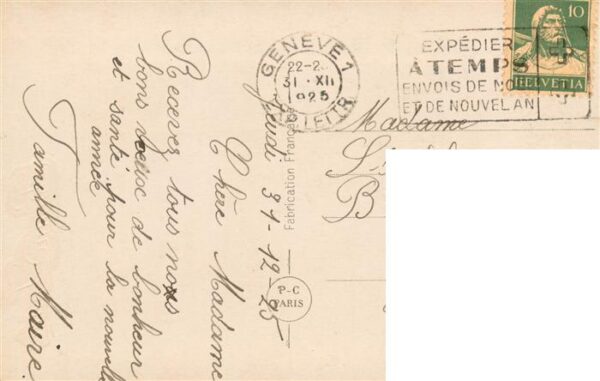 Jeudi 31-12-25
Chère Madame
Recevez tous nos
bons voeux de bonheur
et santé pour la nouvelle
année
Famille Maire
GENÈVE 1
22-2
31.XII
1925
LETTR
EXPÉDIER
A TEMPS
ENVOIS DE NO
ET DE NOUVEL AN
10
HELVETIA
Madame
B
Fabrication Française
P-C
PARIS